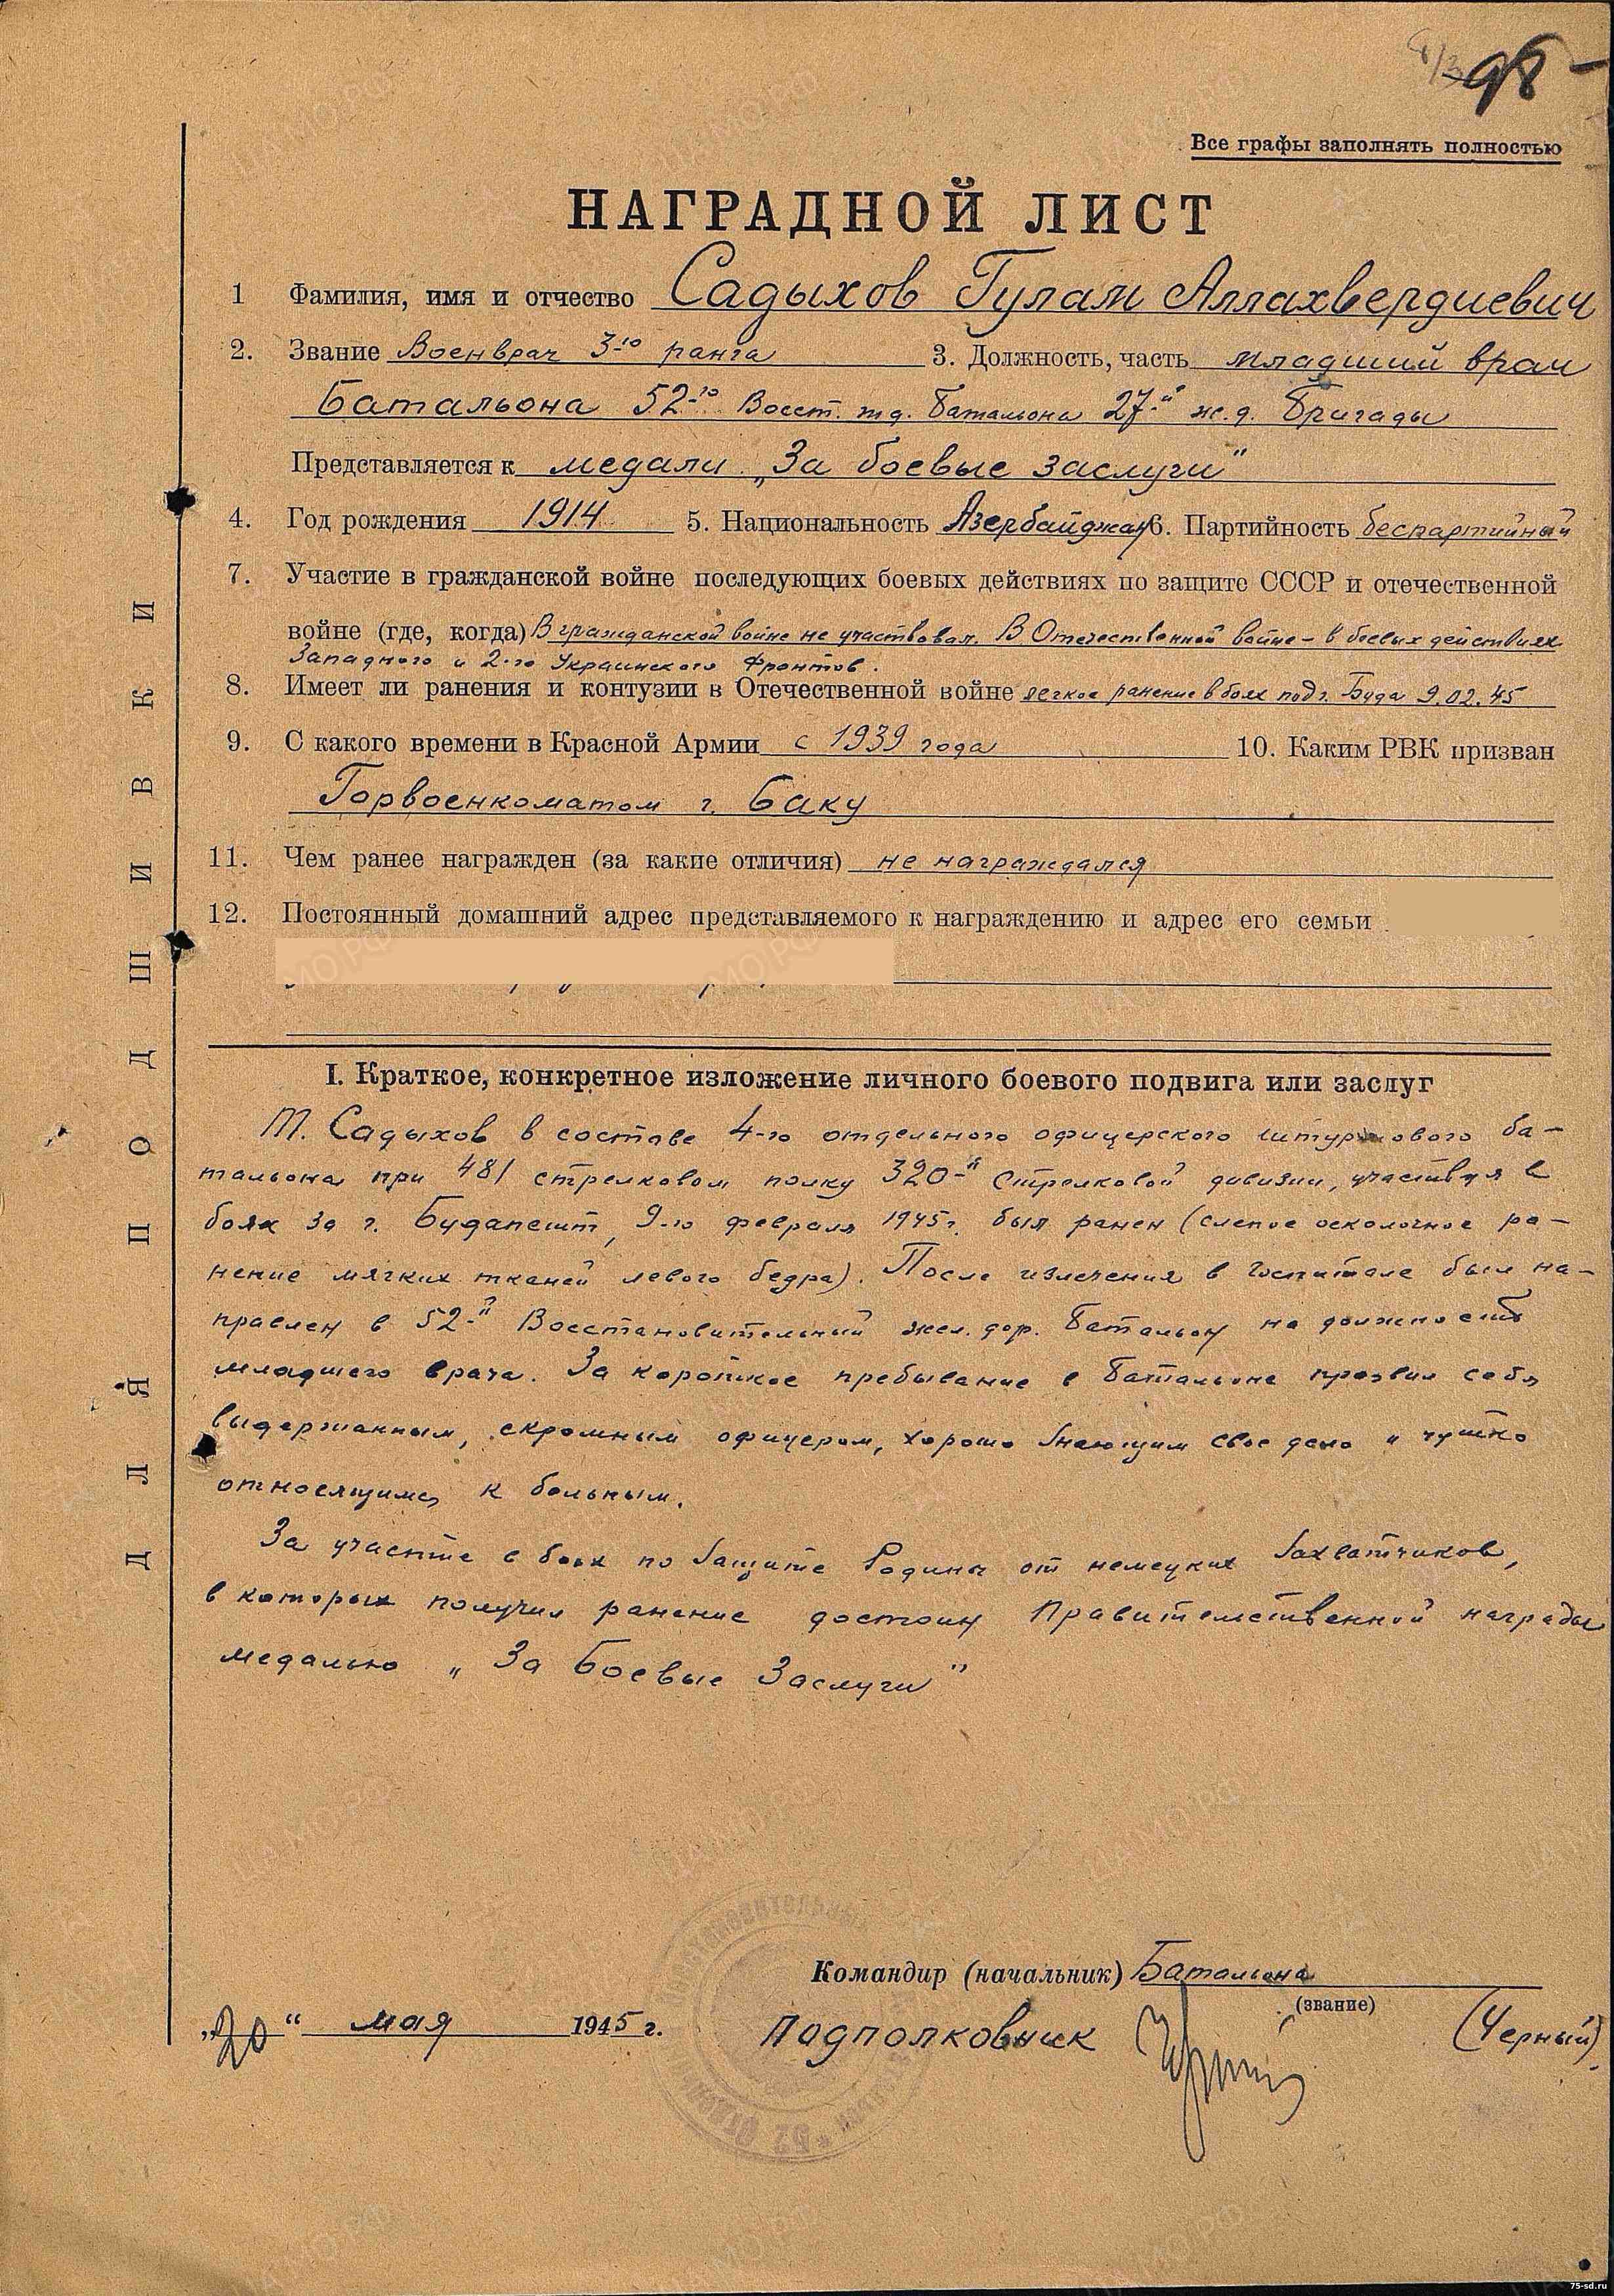 98 -
Все графы заполнять полностью
НАГРАДНОЙ ЛИСТ
1 Фамилия, имя и отчество Садыхов Гулам Аллахвердиевич
2. Звание Военврач 3-го ранга 3. Должность, часть младший врач
Батальона 52-го Восст. жд. батальона 27-й ж.д. бригады
Представляется к медали „За боевые заслуги"
4. Год рождения 1914 5. Национальность Азербайджан 6. Партийность беспартийный
7. Участие в гражданской войне последующих боевых действиях по защите СССР и отечественной
войне (где, когда) В гражданской войне не участвовал. В Отечественной войне - в боевых действиях
Западного и 2-го Украинского фронтов.
8. Имеет ли ранения и контузии в Отечественной войне легкое ранение в боях под г. Буда 9.02.45
9. С какого времени в Красной Армии с 1939 года 10. Каким РВК призван
Горвоенкоматом г. Баку
11. Чем ранее награжден (за какие отличия) не награждался
12. Постоянный домашний адрес представляемого к награждению и адрес его семьи
I. Краткое, конкретное изложение личного боевого подвига или заслуг
Т. Садыхов в составе 4-го отдельного офицерского штурмового ба-
тальона при 481 стрелковом полку 320-й стрелковой дивизии, участвуя в
боях за г. Будапешт, 9-го февраля 1945г. был ранен (слепое осколочное ра-
нение мягких тканей левого бедра). После излечения в госпитале был на-
правлен в 52-й Восстановительный жел. дор. батальон на должность
младшего врача. За короткое пребывание в батальоне проявил себя
выдержанным, скромным офицером, хорошо знающим свое дело и чутко
относящимся к больным.
За участие в боях по защите Родины от немецких захватчиков,
в которых получил ранение достоин Правительственной награды
медалью „За Боевые Заслуги"
Командир (начальник) Батальона
(звание)
„20“ мая 1945 г. Подполковник (Черный)
ДЛЯ ПОДШИВКИ
75-sd.ru